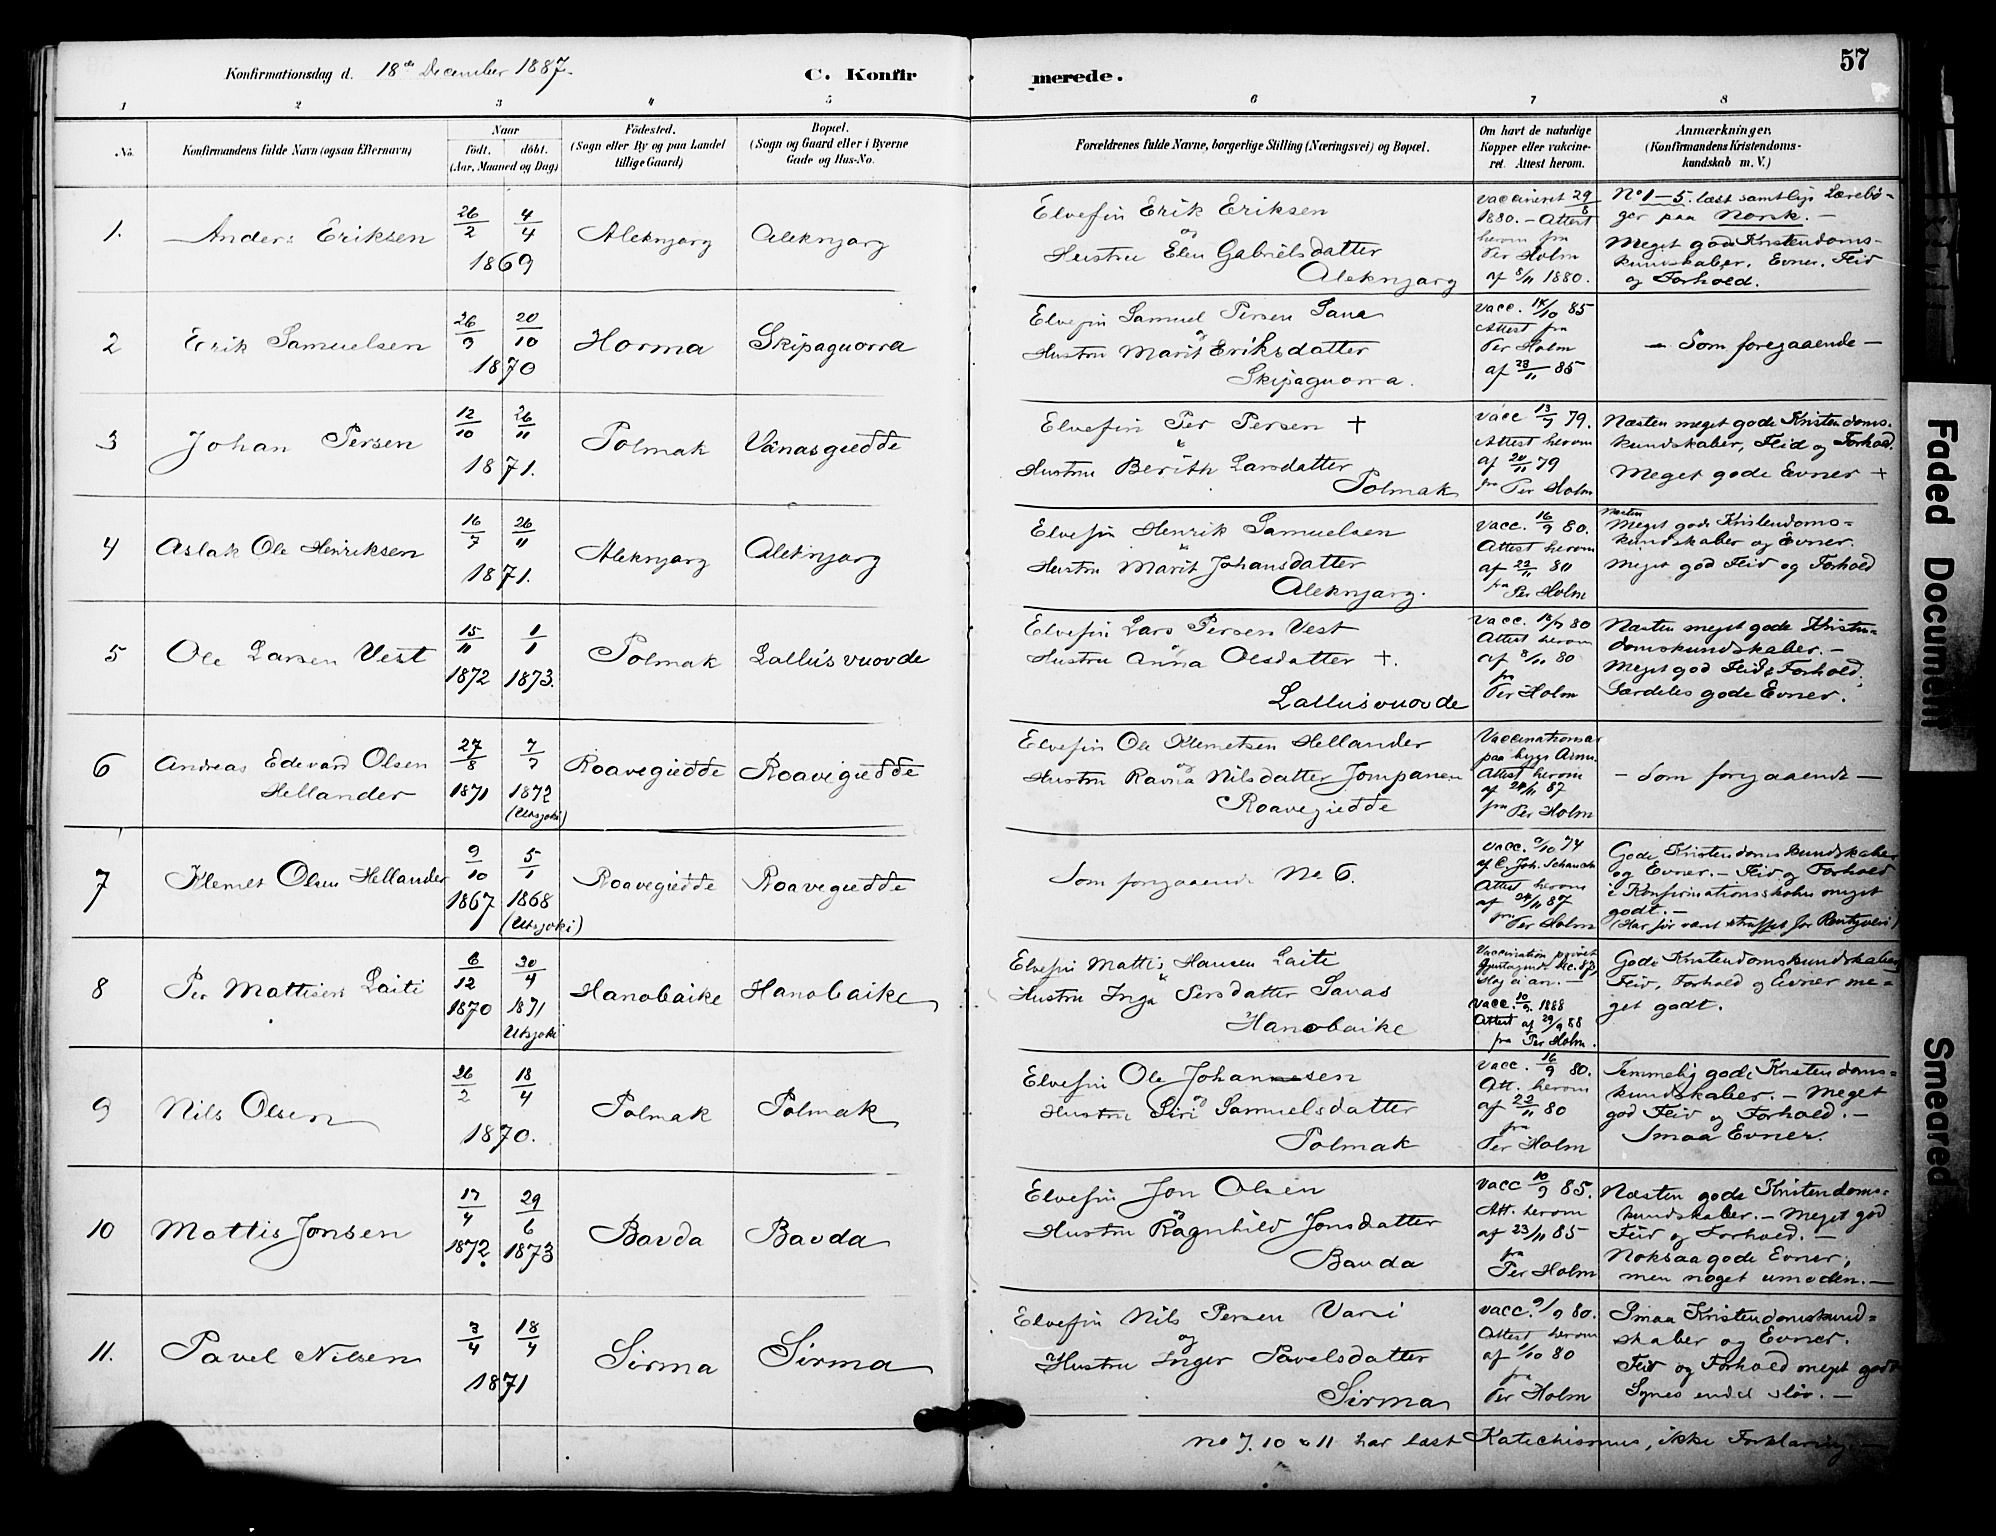 57
Konfirmationsdag d. 18de December 1887.
C. Konfirmerede.
1 2 3 4 5 6 7 8
No.
Konfirmandens fulde Navn (ogsaa Efternavn)
Naar
født. døbt.
(Aar, Maaned og Dag)
Fødested.
(Sogn eller By og paa Landet
tillige Gaard)
Bopæl.
(Sogn og Gaard eller i Byerne
Gade og Hus-No.
Forældrenes fulde Navne, borgerlige Stilling (Næringsvei) og Bopæl.
Om havt de naturlige
Kopper eller vakcine-
ret. Attest herom.
Anmærkninger,
(Konfirmandens Kristendoms-
kundskab m. V.)
1.
Anders Eriksen
26/2 4/4
1869
Aleknjarg
Aleknjarg
Elvefin Erik Eriksen
og
Hustru Elen Gabrielsdatter
Aleknjarg
vaccineret 29/8
1880. - Attest
herom fra
Per Holm
af 8/11 1880.
No 1-5. læst samtlige Lærebø-
ger paa Norsk. -
Meget gode Kristendoms-
kundskaber, Evner, Flid
og Forhold.
2
Erik Samuelsen
26/9 20/10
1870
Horma
Skipaguorra
Elvefin Samuel Persen Sava
og
Hustru Marit Eriksdatter
Skipaguorra.
vacc. 14/10 85
Attest fra
Per Holm
af 23/11 85
- Som foregaaende -
3
Johan Persen
12/10 26/11
1871.
Polmak
Vänasgiedde
Elvefin Per Persen +
&
Hustru Berith Larsdatter
Polmak
vacc 13/9 79.
Attest herom
af 20/11 79
fra Per Holm
Næsten meget gode Kristendoms-
kundskaber, Flid og Forhold.
Meget gode Evner +
4
Aslak Ole Henriksen
16/7 26/11
1871.
Aleknjarg
Aleknjarg
Elvefin Henrik Samuelsen
&
Hustru Marit Johansdatter
Aleknjarg.
vacc. 16/9 80.
Attest herom
af 22/11 80
fra
Per Holm
Næsten
Meget gode Kristendoms-
kundskaber og Evner.
Meget god Flid og Forhold
5
Ole Larsen Vest
15/11 1/1
1872 1873.
Polmak
Lallus vuovde
Elvefin Lars Persen Vest
&
Hustru Anna Olsdatter +.
Lallusvuovde
vacc. 18/9 80
Attest herom
af 8/11 80
fra
Per Holm
Næsten meget gode Kristen-
domskundskaber. -
Meget god Flid & Forhold.
Særdeles gode Evner.
6
Andreas Edevard Olsen
Hellander
27/8 7/7
1871 1872
(Utsjoki)
Roavegiedde
Roavegiedde
Elvefin Ole Klemetsen Hellander
og
Hustru Ravna Nilsdatter Jompanen
Roavegiedde
Vaccinationsar
paa begge Arme.
Attest herom
af 24/11 87
fra Per Holm
- Som foregaaende -
7
Klemet Olsen Hellander
9/10 5/1
1867 1868
(Utsjoki)
Roavegiedde
Roavegiedde
Som foregaaende No 6.
vacc. 9/10 74
af C. Joh. Schanche
Attest herom
af 24/11 87
fra
Per Holm
Gode Kristendomskundskaber
og Evner. - Flid og Forhold
i Konfirmationsskolen meget
godt. -
(Har før været straffet for Rentyveri)
8
Per Mattisen Laiti
6/12 30/4
1870 1871
Utsjoki
Hanobaike
Hanobaike
Elvefin Mattis Hansen Laiti
&
Hustru Inga Persdatter Savas
Hanobaike
Vaccination prøvet
vacc. 10/9 1888
Attest af 29/9 88
fra Per Holm.
Gode Kristendomskundskaber
Flid, Forhold og Evner me-
get godt.
9
Nils Olsen
26/2 18/4
1870.
Polmak
Polmak
Elvefin Ole Johannesen
og
Hustru Siri Samuelsdatter
Polmak
vacc. 16/9 80.
Att. herom
af 22/11 80
fra
Per Holm
Temmelig gode Kristendoms-
kundskaber. - Meget
god Flid og Forhold. -
Smaa Evner.
10
Mattis Jonsen
17/4 29/6
1872. 1873
Bavda
Bavda
Elvefin Jon Olsen
og
Hustru Ragnhild Jonsdatter
Bavda
vacc 10/9 85.
Att. herom
af 23/11 85
fra
Per Holm
Næsten gode Kristendoms-
kundskaber. - Meget god
Flid og Forhold. -
Noksaa gode Evner,
men noget umoden. -
11.
Pavel Nilsen
3/4 18/4
1871
Sirma
Sirma
Elvefin Nils Persen Varsi
og
Hustru Inger Pavelsdatter
Sirma
vacc. 9/9 80.
Attest herom
af 1/10 80
fra
Per Holm
Smaa Kristendomskund-
skaber og Evner.
Flid og Forhold meget godt
Synes endel sløv. -
No 7. 10 & 11 har læst Katechismus, ikke Forklaring. -
Faded Document
Smeared